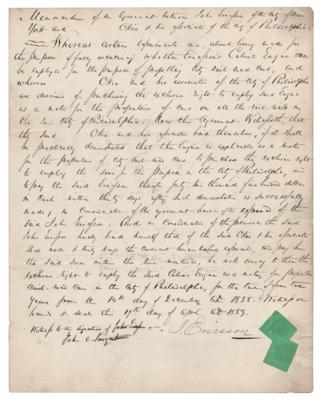 Memorandum of an Agreement between John Ericsson of the City of New
York and Obie & his associates of the City of Philadelphia
Whereas certain experiments are about being made for
the purpose of fully ascertaining whether Ericsson's Caloric Engine can
be employed for the purpose of propelling City rail road cars, and
whereas Obie and his associates of the City of Philadelphia
are desirous of purchasing the exclusive right to employ said Engine
as a motor for the propulsion of cars on all the rail roads in
the City of Philadelphia: Now this Agreement Witnesseth that
the said Obie and his associates bind themselves, if it shall
be practically demonstrated that the Engine is applicable as a motor
for the propulsion of City rail-road cars, to purchase the exclusive right
to employ the same for the purpose in the City of Philadelphia, and
to pay the said Ericsson thirty thousand dollars
in cash within thirty days after said demonstration is successfully
made, in consideration of the agreement hereinafter of the
said John Ericsson. And in consideration of the premises the said
John Ericsson hereby binds himself that if the said Obie & his associates
shall keep the current
the said sum within the time mentioned, he will convey to them the
exclusive right to employ the said Caloric Engine as a motor for propelling
Rail-road Cars in the City of Philadelphia, for the term of
years from the 14th day of December A.D. 1858. Witness our
hands & seals this 19th day of April A.D. 1859.
Witness to the signature of John Ericsson
John O. Sargent
J. Ericsson